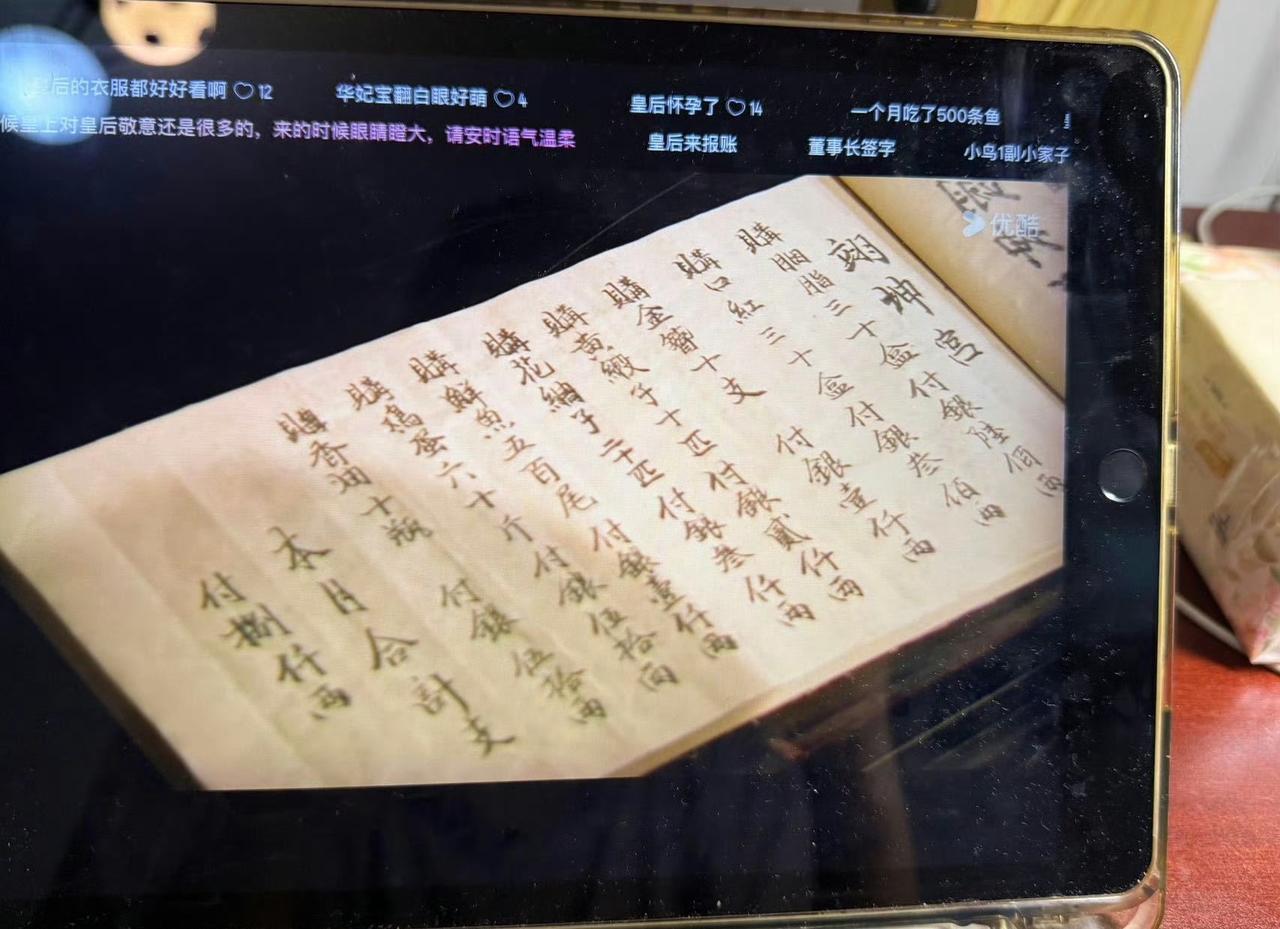 皇后的衣服都好好看啊 12
华妃宝翻白眼好萌 4
皇后怀孕了 14
一个月吃了500条鱼
候皇上对皇后敬意还是很多的，来的时候眼睛瞪大，请安时语气温柔
皇后来报账
董事长签字
小鸟1副小家子
优酷
翊坤宫
購胭脂三十盒付銀陸佰兩
購口紅三十盒付銀叁佰兩
購金簪十支付銀壹仟兩
購黄緞子十匹付銀貳仟兩
購花紬子二十匹付銀叁仟兩
購鮮魚五百尾付銀壹仟兩
購鷄蛋六十斤付銀伍拾兩
購香油十瓶付銀伍拾兩
本月合計支
付捌仟兩